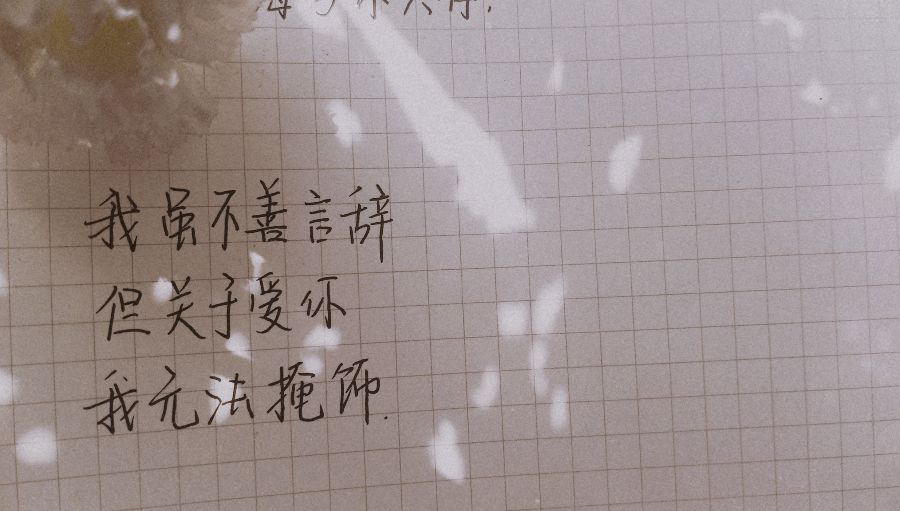 我虽不善言辞
但关于爱你
我无法掩饰.